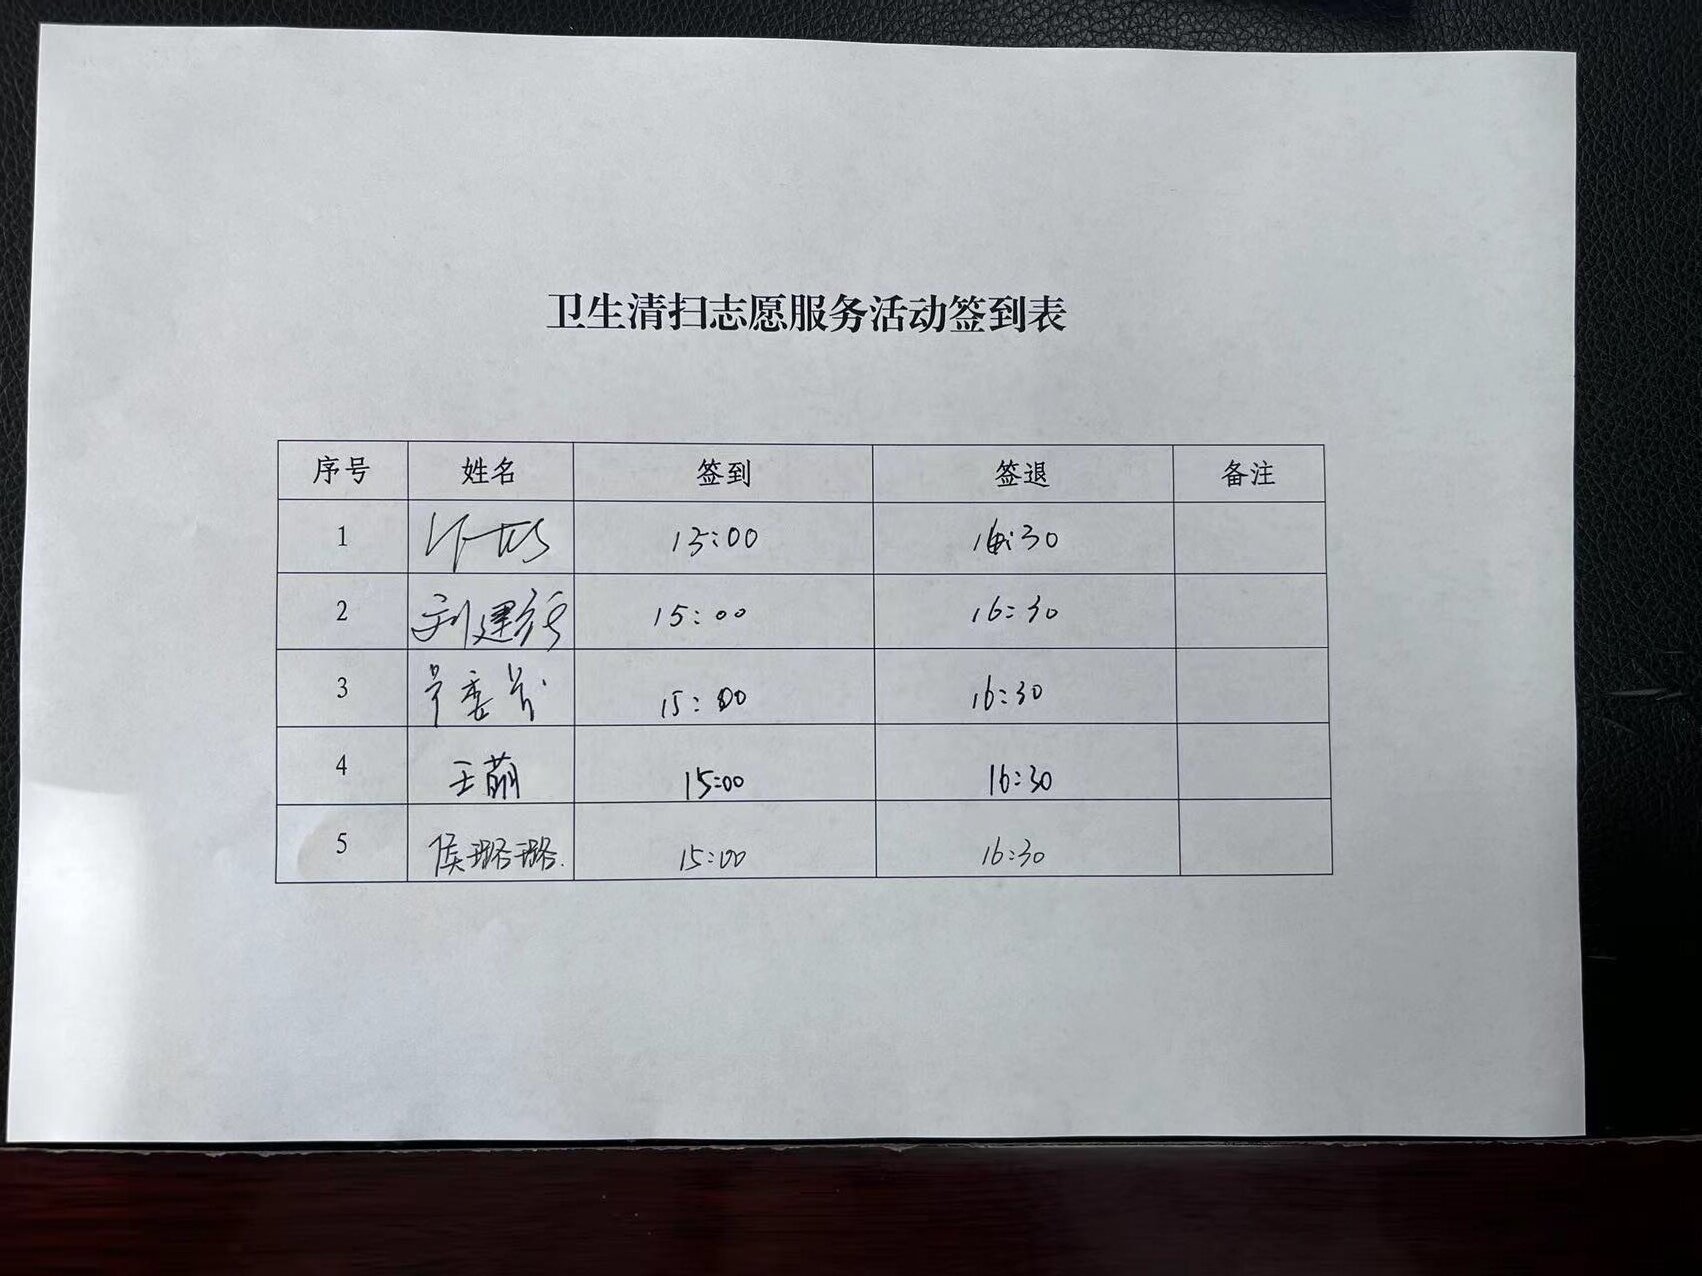 卫生清扫志愿服务活动签到表
序号 姓名 签到 签退 备注
1 15:00 16:30
2 刘建 15:00 16:30
3 15:00 16:30
4 王萌 15:00 16:30
5 侯璐璐. 15:00 16:30